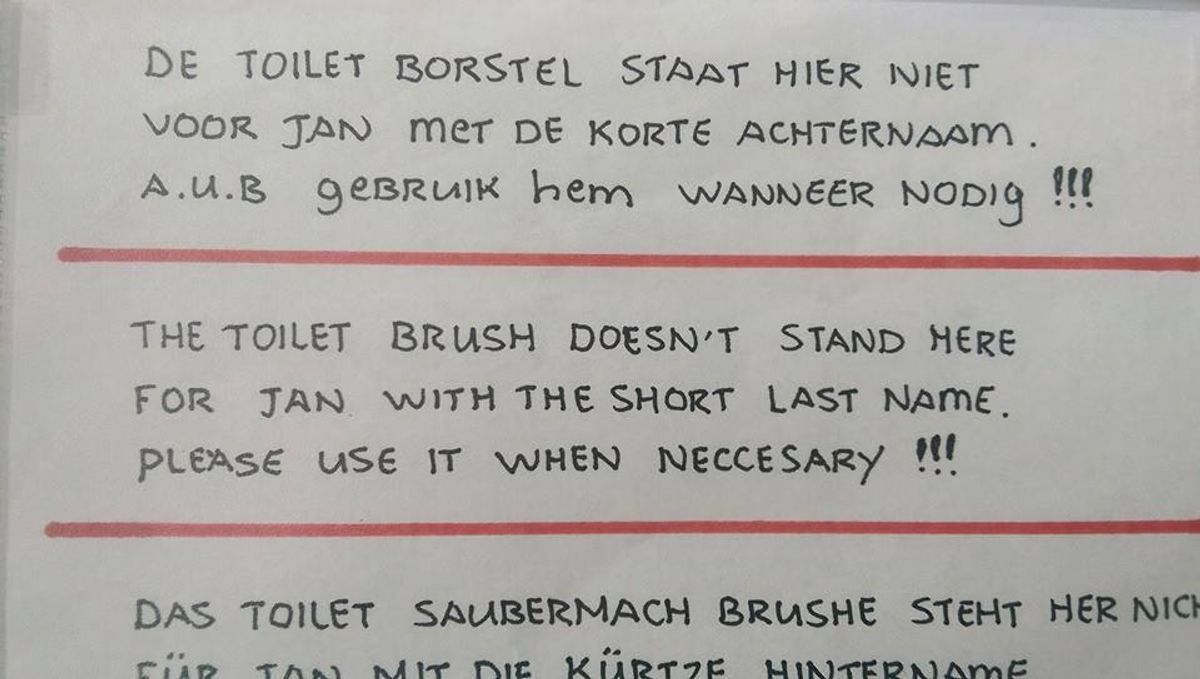 DE TOILET BORSTEL STAAT HIER NIET
VOOR JAN MET DE KORTE ACHTERNAAM.
A.U.B GEBRUIK hem WANNEER NODIG !!!
THE TOILET BRUSH DOESN'T STAND HERE
FOR JAN WITH THE SHORT LAST NAME.
PLEASE USE IT WHEN NECCESARY !!!
DAS TOILET SAUBERMACH BRUSHE STEHT HER NICH
FÜR JAN MIT DIE KÜRTZE HINTERNAME